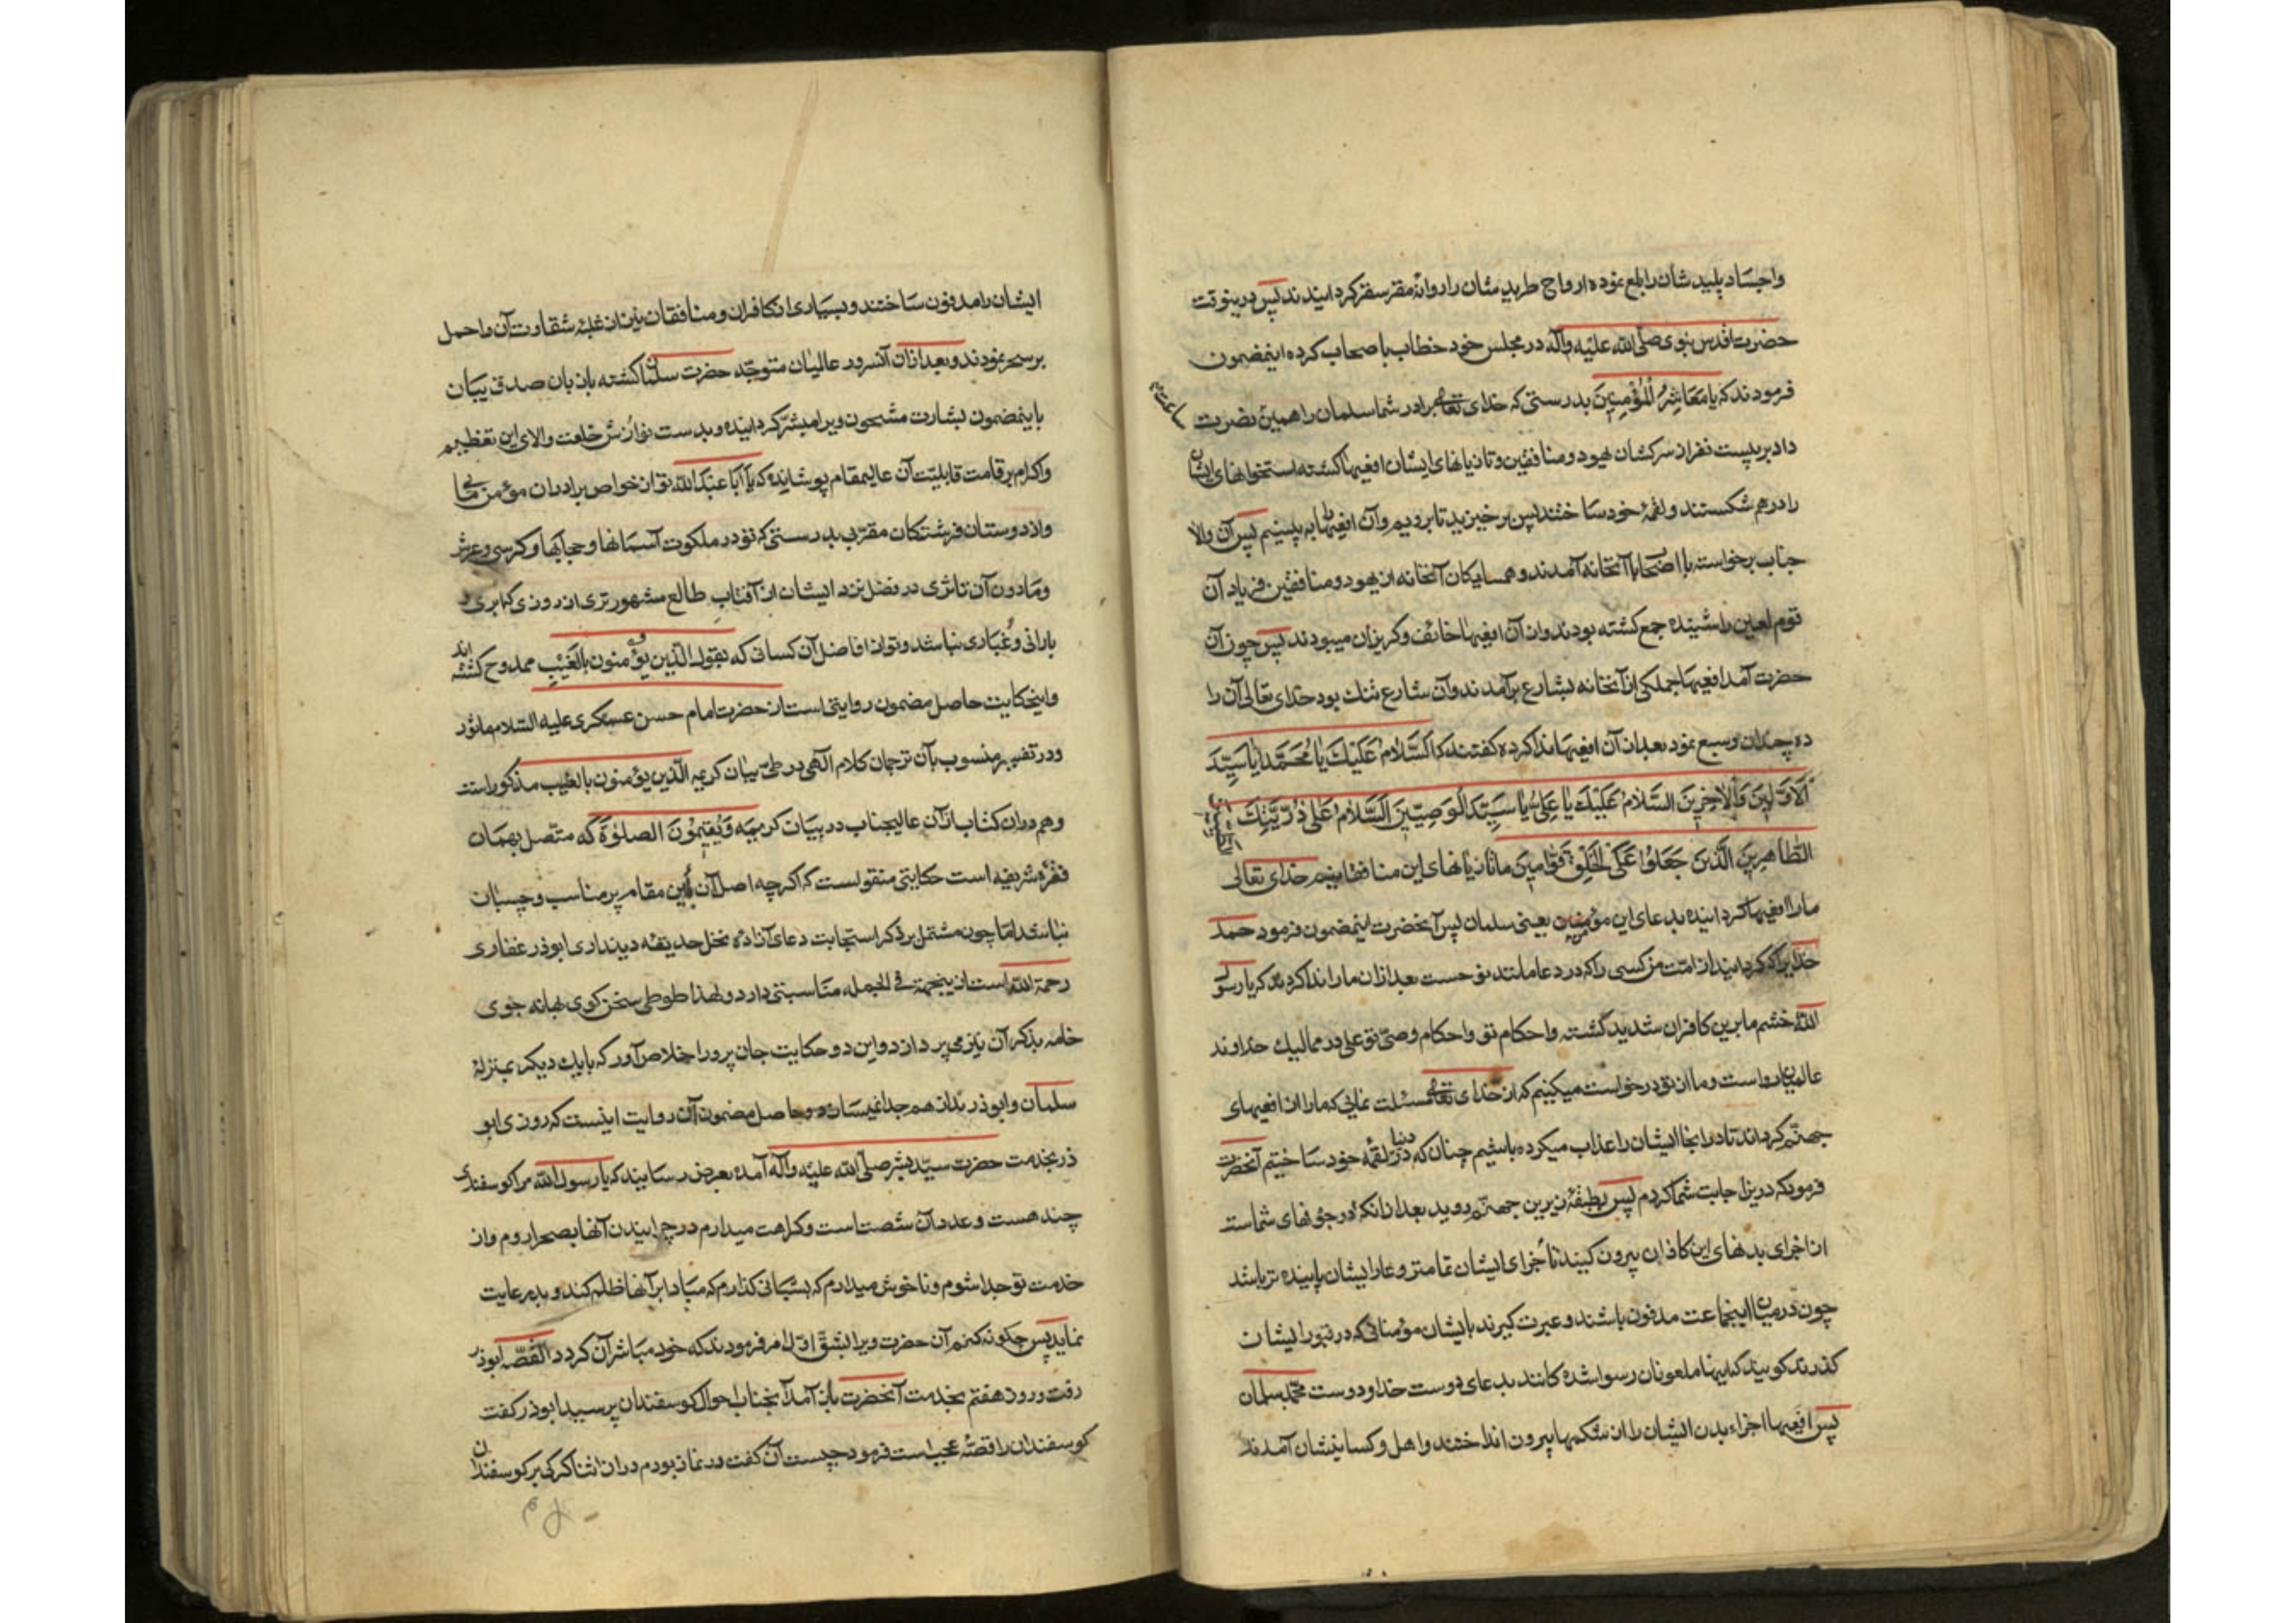 واجساد پلید شان را بلع نموده ارواح طریدشان را روانهٔ مقر سقر کردانیدند پس درینوقت
حضرت اقدس نبوی صلّی الله علیه وآله در مجلس خود خطاب باصحاب کرده اینمضمون
فرمودند که یا معاشر المؤمنین بدرستی که خدای تعالی برادر شما سلمان را همین نصرت
ساعت
داد بر بیست نفر از سرکشان یهود و منافقین و تازیانهای ایشان افعیها کشته استخوانهای ایشان
را در هم شکستند و لقمهٔ خود ساختند پس برخیزید تا برویم وآن افعیها به بینیم پس آن والا
جناب برخواسته با اصحاب بآنخانه آمدند و همسایکان آنخانه از یهود و منافقین فریاد آن
قوم لعین را شنیده جمع کشته بودند واز آن افعیها خائف و کریزان میبودند پس چون آن
حضرت آمد افعیها جملکی از آنخانه بشارع برآمدند وآن شارع تنك بود خدای تعالی آن را
ده چندان وسیع نمود بعد از آن افعیها ندا کرده کفتند که السّلام علیك یا محمّد یا سیّد
الاوّلین والآخرین السّلام علیك یا علیّ یا سیّد الوصیّین السّلام علی ذرّیّتك
الطّاهرین الّذین جعلوا علی الخلق قوّامین ما تازیانهای این منافقانیم خدای تعالی
مارا افعیها کردانیده بدعای این مؤمن یعنی سلمان پس آنحضرت اینمضمون فرمود حمد
خدایرا که کردانید از امّت من کسی را که در دعا مانند نوحست بعد ازان مارا ندا کردند که یا رسول
الله خشم ما برین کافران شدید گشته واحکام تو واحکام وصیّ تو علی در ممالیك خداوند
عالمیان رواست وما از تو درخواست میکنیم که از خدای تعالی مسئلت نمائی که مارا از افعیهای
جهنّم کرداند تا در انجا ایشان را عذاب میکرده باشیم چنان که در دنیا لقمه خود ساختیم آنحضرت
فرمود که درین اجابت شما کردم پس بطبقهٔ زیرین جهنّم روید بعد ازانکه در جوفهای شماست
از اجزای بدنهای این کافران بیرون کنید تا جزای ایشان تمامتر وعار ایشان پاینده تر باشد
چون در میان اینجماعت مدفون باشند و عبرت کیرند بایشان مؤمنانی که در قبور ایشان
کذرند کویند که اینها ملعونان رسوا شده کانند بدعای دوست خدا و دوست محمّد سلمان
پس افعیها اجزاء بدن ایشان را از شکمها بیرون انداختند واهل وکسان ایشان آمدند
ایشان را مدفون ساختند و بسیاری از کافران و منافقان نیز از غلبهٔ شقاوت آن را حمل
بر سحر نمودند و بعد ازان آنسرور عالمیان متوجّه حضرت سلمان کشته بزبان صدق بیان
باینمضمون بشارت مشحون ویرا مبشّر کردانیده و بدست نوازش خلعت والای این تعظیم
واکرام بر قامت قابلیّت آن عالیمقام پوشانیده که یا ابا عبد الله تو از خواص برادران مؤمن مائی
واز دوستان فرشتکان مقرّبی بدرستی که تو در ملکوت آسمانها و حجابها و کرسی و عرش
وما دون آن تا ثری در فضل نزد ایشان از آفتاب طالع مشهورتری از روزی که ابری و
بارانی و غباری نباشد و تو از افاضل آن کسانی که بقوله الّذین یؤمنون بالغیب ممدوح کشته اند
واینحکایت حاصل مضمون روایتی است از حضرت امام حسن عسکری علیه السّلام ماثور
ودر تفسیر منسوب بآن ترجمان کلام الهی در طیّ بیان کریمه الّذین یؤمنون بالغیب مذکور است
وهم دران کتاب از آن عالیجناب در بیان کریمه ویقیمون الصلوٰة که متّصل بهمان
فقرهٔ شریفه است حکایتی منقولست که اکرچه اصل آن باین مقام پر مناسب و چسبان
نباشد امّا چون مشتمل بر ذکر استجابت دعای آزاده نخل حدیقهٔ دینداری ابوذر غفاری
رحمة الله است از ینجهة فی الجمله مناسبتی دارد ولهذا طوطی سخن کوی بهانه جوی
خامه بذکر آن نیز می پردازد و این دو حکایت جان پرور اخلاص آور که بایك دیکر بمنزلهٔ
سلمان وابوذرند از هم جدا نمیسازد و حاصل مضمون آن روایت اینست که روزی ابو
ذر بخدمت حضرت سیّد بشر صلّی الله علیه وآله آمده بعرض رسانید که یا رسول الله مرا کوسفندی
چند هست و عدد آن شصت است و کراهت میدارم در چرانیدن آنها بصحرا روم واز
خدمت تو جدا شوم و ناخوش میدارم که بشبانی کذارم که مبادا بر آنها ظلم کند و بد رعایت
نماید پس چکونه کنم آن حضرت ویرا بشقّ اوّل امر فرمودند که خود مباشر آن کردد القصّه ابوذر
رفت و روز هفتم بخدمت آنحضرت باز آمد آنجناب احوال کوسفندان پرسید ابوذر کفت
کوسفندان را قصّهٔ عجب است فرمود چیست آن کفت در نماز بودم دران اثنا کرکی بر کوسفندان